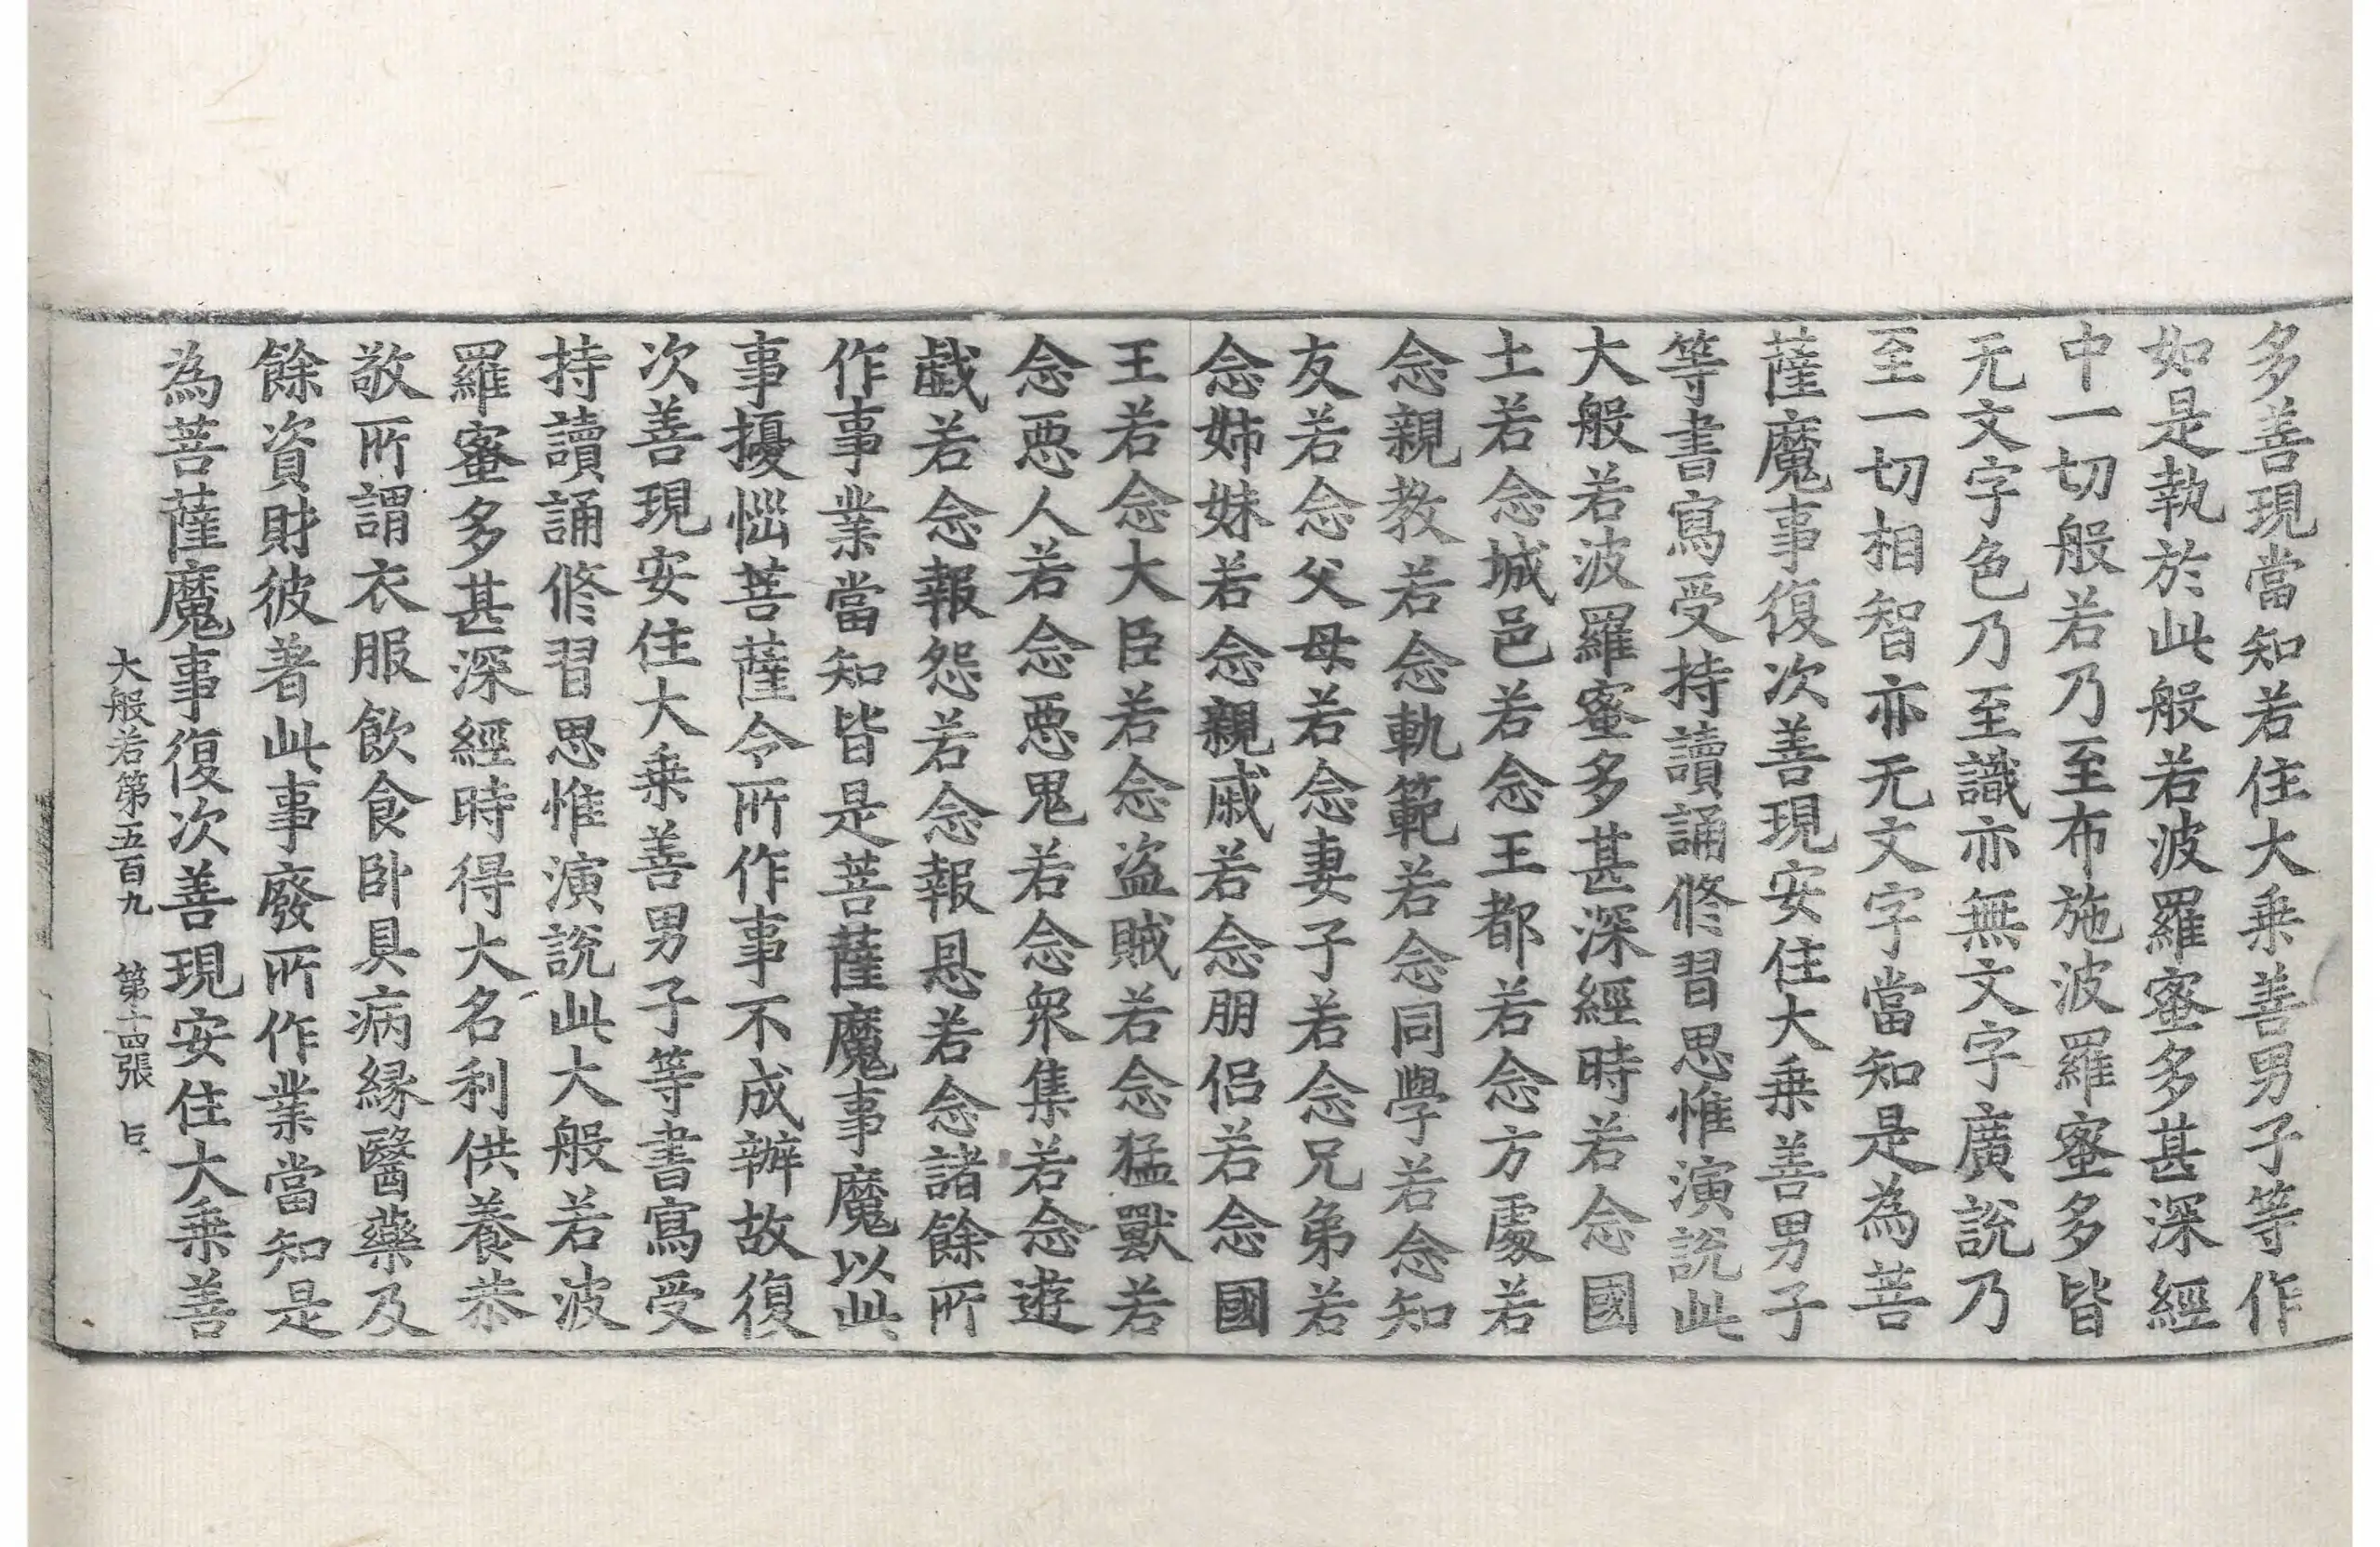 多善現當知若住大乗善男子等作
如是執於此般若波羅蜜多甚深經
中一切般若乃至布施波羅蜜多皆
无文字色乃至識亦無文字廣說乃
至一切相智亦无文字當知是為菩
薩魔事復次善現安住大乗善男子
等書寫受持讀誦修習思惟演說此
大般若波羅蜜多甚深經時若念國
土若念城邑若念王都若念方處若
念親教若念軌範若念同學若念知
友若念父母若念妻子若念兄弟若
念姉妹若念親戚若念朋侶若念國
王若念大臣若念盗賊若念猛獸若
念惡人若念惡鬼若念衆集若念遊
戯若念報怨若念報恩若念諸餘所
作事業當知皆是菩薩魔事魔以此
事擾惱菩薩令所作事不成辦故復
次善現安住大乗善男子等書寫受
持讀誦修習思惟演說此大般若波
羅蜜多甚深經時得大名利供養恭
敬所謂衣服飲食卧具病縁醫藥及
餘資財彼著此事廢所作業當知是
為菩薩魔事復次善現安住大乗善
大般若第五百九 第十四張